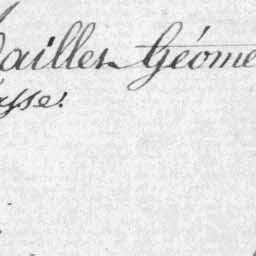 ailler Géome
asse.